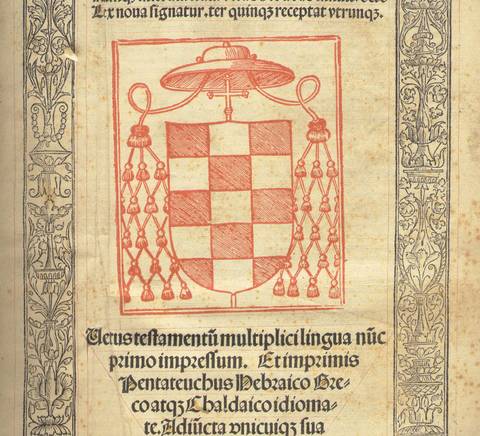 Lex noua signatur. ter quinqꝫ receptat vtrunqꝫ.
Uetus testamentū multiplici lingua nūc
primo impressum. Et imprimis
Pentateuchus Hebraico Gre-
co atqꝫ Chaldaico idioma-
te. Adiūcta vnicuiqꝫ sua